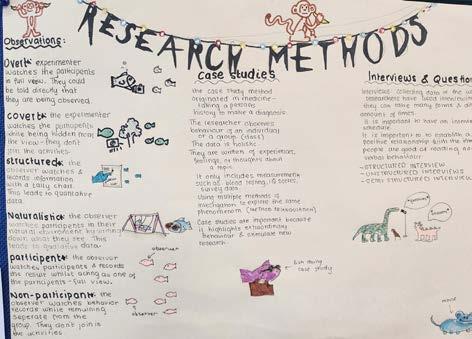 RESEARCH METHODS
Observations:
Overt: the experimenter
watches the participants
in full view. They could
be told directly that
they are being observed.
Covert: the experimenter
watches the participants
while being hidden from
the view - they don't
join the activities.
Structured: the
observer watches &
records information
with a tally chart.
This leads to qualitative
data.
Naturalistic: the observer
watches participants in their
natural environment by writing
down what they see. This
leads to qualitative data.
Participant: the observer
watches participants & records
the result whilst acting as one of
the participants - full view.
Non-participant: the
observer watches behavior
records while remaining
seperate from the
group. They don't join in
the activities.
observer
observer
Case studies
the case study method
originated in medicine -
taking a persons
history to make a diagnosis.
The researcher observes
behaviour of an individual
or a group (class)
The data is holistic
They are written of experiences,
feelings, or thoughts about
a topic.
It only includes measurements
such as: blood testing, IQ scores,
survey data.
Using multiple methods to
investigate to explore the same
phenomenon (method triangulation)
Case studies are important because
it highlights extraordinary
behaviour & stimulate new
research.
case study
Interviews & Question
Interviews: collecting data in the
researchers have used interviews
they can take many forms & di
amounts of
It is important to have an interview
schedule.
It is important to to establish a
positive relationship with the
people are good at reading non
verbal behaviour
-STRUCTURED INTERVIEW
-UNSTRUCTURED INTERVIEWS
-SEMI STRUCTURED INTERVIEW
mouse